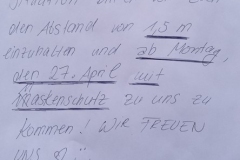 den Abstand von 1,5 m
einzuhalten und ab Montag,
den 27. April mit
Maskenschutz zu uns zu
kommen! WIR FREUEN
UNS